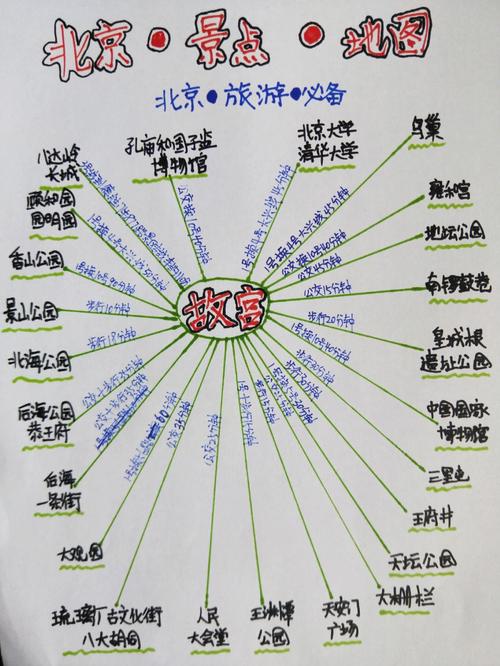 北京·景点·地图
北京·旅游·必备
八达岭
长城
孔庙和国子监
博物馆
北京大学
清华大学
鸟巢
颐和园
圆明园
雍和宫
地坛公园
香山公园
南锣鼓巷
景山公园
故宫
皇城根
遗址公园
北海公园
后海公园
恭王府
中国国家
博物馆
后海
一条街
三里屯
王府井
大观园
天坛公园
大栅栏
琉璃厂古文化街
八大胡同
人民
大会堂
玉渊潭
公园
天安门
广场
公交换10号40分钟
1号换4号大兴线45分钟
公交45分钟
公交15分钟
步行20分钟
1号换10号40分钟
步行10分钟
步行18分钟
公交35分钟
公交25分钟